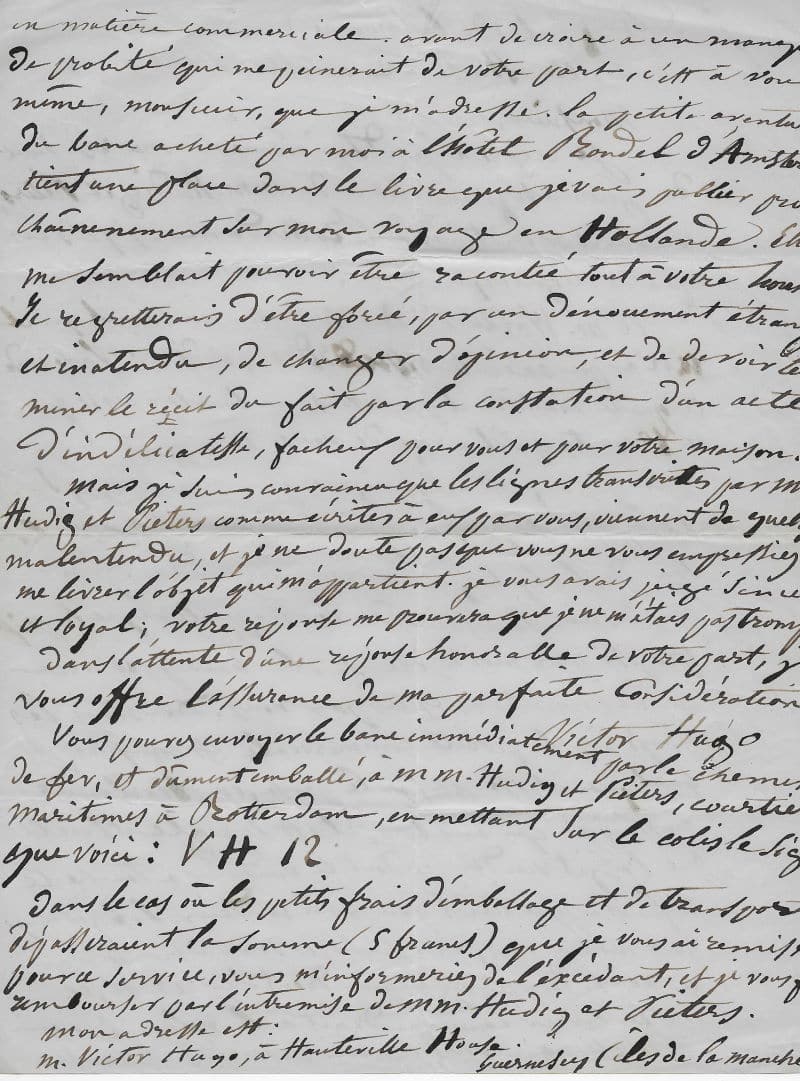 en matière commerciale. avant de croire à un manqu
de probité qui me peinerait de votre part, c'est à vou
même, monsieur, que je m'adresse. la petite aventu
du banc acheté par moi à l'hôtel Rondel d'Amster
tient une place dans le livre que je vais publier pro
chainement sur mon voyage en Hollande. Ell
me semblait pouvoir être racontée tout à votre honn
Je regretterais d'être forcé, par un dénouement étran
et inatendu, de changer d'opinion, et de devoir te
miner le récit du fait par la constation d'un acte
d'indélicatesse, facheux pour vous et pour votre maison.
mais je suis convaincu que les lignes transcrites par m
Hudig et Pieters comme écrites à eux par vous, viennent de quelq
malentendu, et je ne doute pas que vous ne vous empressiez
me livrer l'objet qui m'appartient. je vous avais jugé since
et loyal; votre réponse me prouvera que je ne m'étais pas tromp
dans l'attente d'une réponse honorable de votre part, j
vous offre l'assurance de ma parfaite considération
Victor Hugo
Vous pouvez envoyer le banc immédiatement par le chemin
de fer, et dûment emballé, à m m. Hudig et Pieters, courtie
maritimes à Rotterdam, en mettant sur le colis le sig
que voici: V H 12
dans le cas où les petits frais d'emballage et de transpor
dépasseraient la somme (5 francs) que je vous ai remise
pour ce service, vous m'informeriez de l'excédant, et je vous f
rembourser par l'intremise de m m. Hudig et Pieters.
mon adresse est:
m. Victor Hugo, à Hauteville House.
Guernesey (îles de la manche